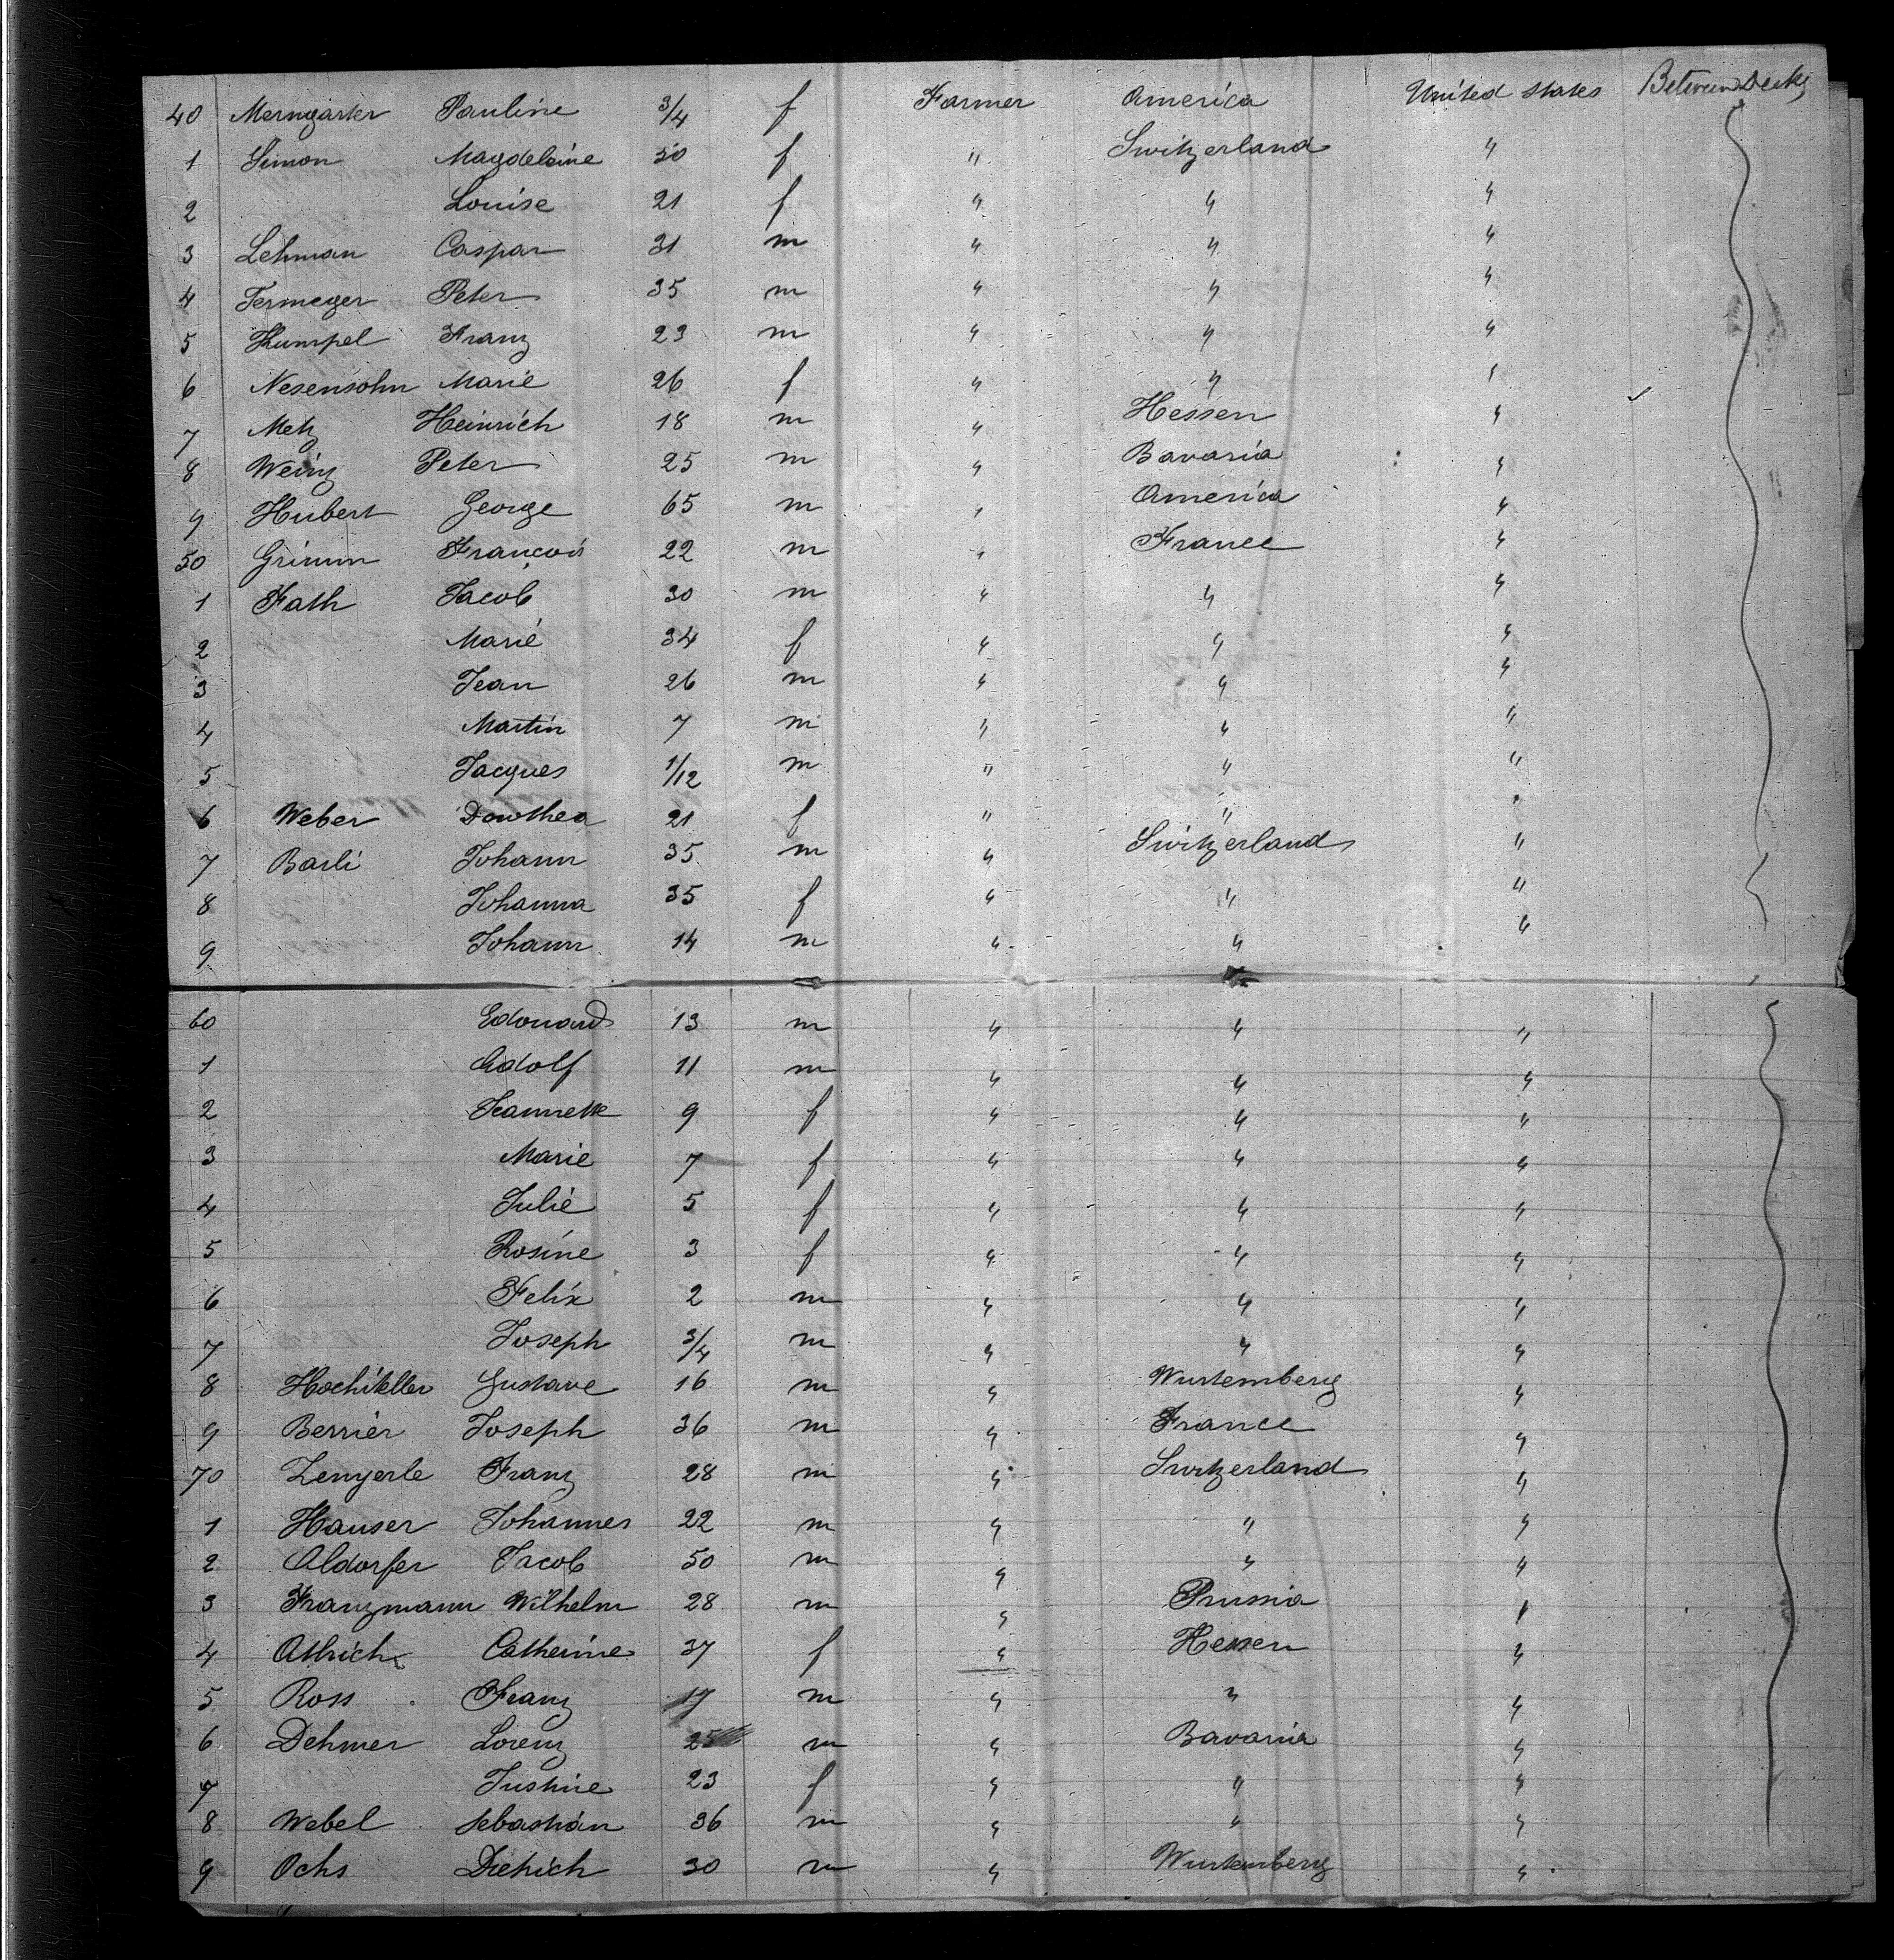 40 Merngarter Pauline 3/4 f Farmer America United States Between Decks
1 Simon Magdeleine 30 f " Switzerland "
2 Louise 21 f " " "
3 Lehman Caspar 31 m " " "
4 Termeger Peter 35 m " " "
5 Kumpel Franz 23 m " " "
6 Nesensohn Marie 26 f " " "
7 Metz Heinrich 18 m " Hessen "
8 Weinz Peter 25 m " Bavaria "
9 Hubert George 65 m " America "
50 Grimm François 22 m " France "
1 Fath Jacob 30 m " " "
2 Marie 34 f " " "
3 Jean 26 m " " "
4 Martin 7 m " " "
5 Jacques 1/12 m " " "
6 Weber Dorothea 21 f " " "
7 Barli Johann 35 m " Switzerland "
8 Johanna 35 f " " "
9 Johann 14 m " " "
60 Edouard 13 m " " "
1 Adolf 11 m " " "
2 Jeannette 9 f " " "
3 Marie 7 f " " "
4 Julie 5 f " " "
5 Rosine 3 f " " "
6 Felix 2 m " " "
7 Joseph 3/4 m " " "
8 Gustave 16 m " Wurtemberg "
9 Berrier Joseph 36 m " France "
70 Zengerle Franz 28 m " Switzerland "
1 Hauser Johannes 22 m " " "
2 Aldorfer Jacob 50 m " " "
3 Franzmann Wilhelm 28 m " Prussia "
4 Catherine 37 f " Hessen "
5 Ross Franz 17 m " " "
6 Dehmer Lorenz 25 m " Bavaria "
7 Justine 23 f " " "
8 Webel Sebastian 36 m " " "
9 Ochs Dietrich 30 m " Wurtemberg "